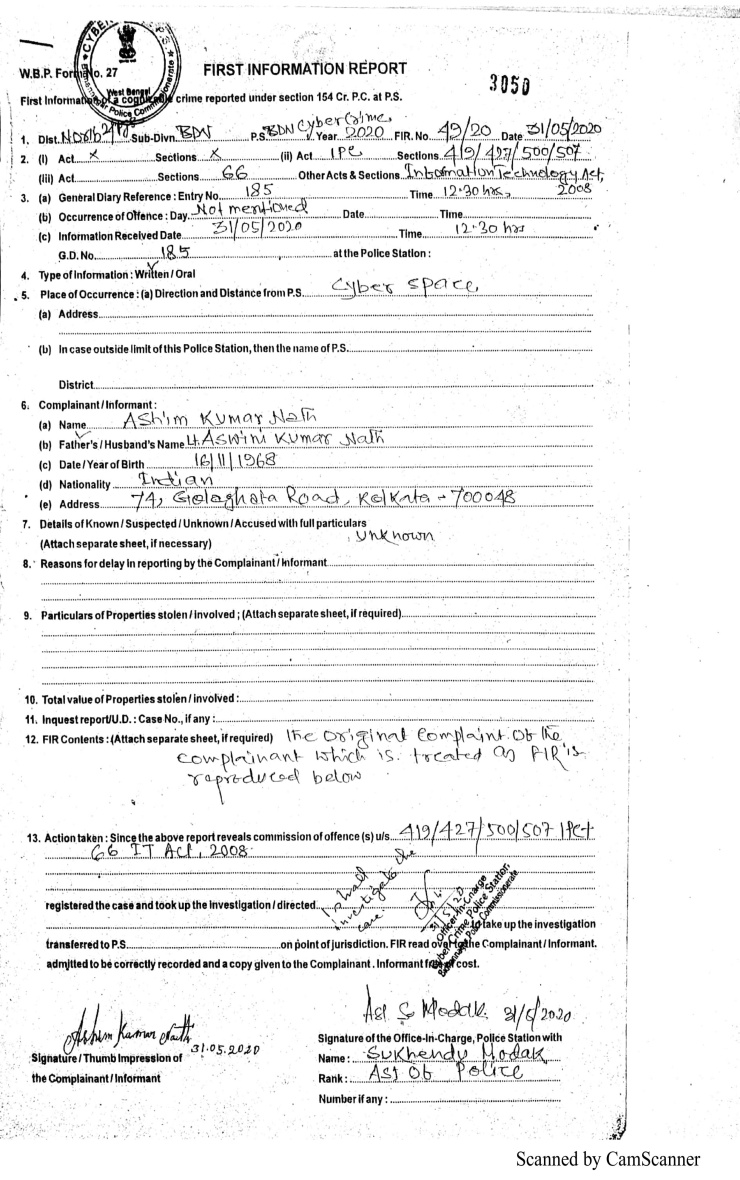 CYBER P.S.
West Bengal
Bidhannagar Police Commissionerate
W.B.P. Form No. 27
FIRST INFORMATION REPORT
3050
First Information of a cognizable crime reported under section 154 Cr. P.C. at P.S.
1. Dist. North 24 Pgs Sub-Divn. BDN P.S. BDN Cyber Crime Year 2020 FIR. No. 49/20 Date 31/05/2020
2. (I) Act X Sections X (ii) Act IPC Sections 419/427/500/507
(iii) Act Sections 66 Other Acts & Sections Information Technology Act, 2008
3. (a) General Diary Reference : Entry No. 185 Time 12.30 hrs,
(b) Occurrence of Offence : Day Not mentioned Date Time
(c) Information Received Date 31/05/2020 Time 12.30 hrs
G.D. No. 185 at the Police Station :
4. Type of Information : Written / Oral
5. Place of Occurrence : (a) Direction and Distance from P.S. Cyber space,
(a) Address
(b) In case outside limit of this Police Station, then the name of P.S.
District
6. Complainant / Informant :
(a) Name Ashim Kumar Nath
(b) Father's / Husband's Name Lt. Aswini Kumar Nath
(c) Date / Year of Birth 16/11/1968
(d) Nationality Indian
(e) Address 74, Golaghata Road, Kolkata - 700048
7. Details of Known / Suspected / Unknown / Accused with full particulars
(Attach separate sheet, if necessary) Unknown
8. Reasons for delay in reporting by the Complainant / Informant
9. Particulars of Properties stolen / involved ; (Attach separate sheet, if required)
10. Total value of Properties stolen / involved :
11. Inquest report/U.D. : Case No., if any :
12. FIR Contents : (Attach separate sheet, if required) The original complaint of the
complainant which is treated as FIR is
reproduced below
13. Action taken : Since the above report reveals commission of offence (s) u/s. 419/427/500/507 IPC +
66 IT Act, 2008
I shall
investigate the
case
registered the case and took up the investigation / directed
31/5/20
Officer-In-Charge
Cyber Crime Police Station
Bidhannagar Police Commissionerate
to take up the investigation
transferred to P.S. on point of jurisdiction. FIR read over to the Complainant / Informant.
admitted to be correctly recorded and a copy given to the Complainant. Informant free of cost.
Ashim Kumar Nath
31.05.2020
Signature / Thumb Impression of
the Complainant / Informant
ASI S Modak 31/5/2020
Signature of the Office-In-Charge, Police Station with
Name : Sukhendu Modak
Rank : ASI Of Police
Number if any :
Scanned by CamScanner